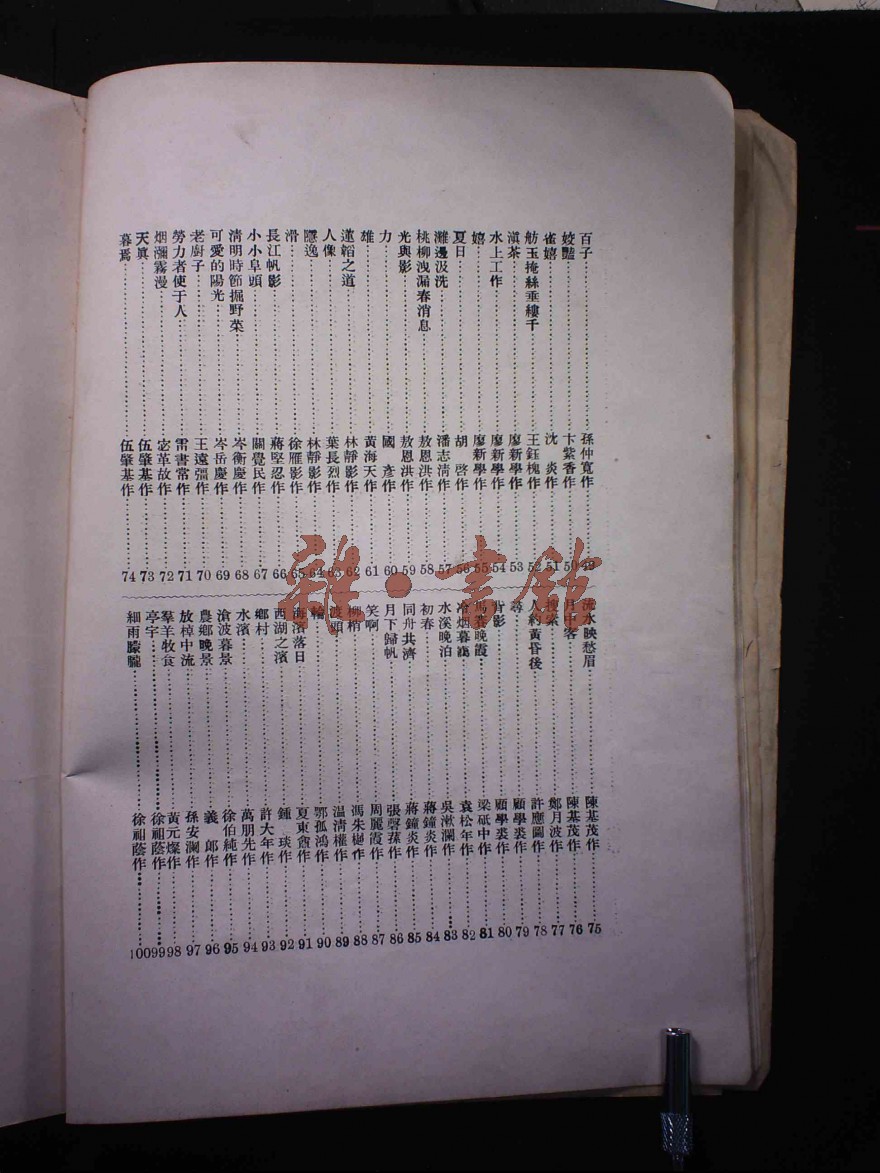 百子 孫仲寬作 49
姣豔 卞紫香作 50
雀嬉 沈炎作 51
舫玉掩絲垂縷千 王鈺槐作 52
滇茶 廖新學作 53
水上工作 廖新學作 54
嬉 廖新學作 55
夏日 胡啓作 56
灘邊汲洗 潘志清作 57
桃柳洩漏春消息 敖恩洪作 58
光與影 敖恩洪作 59
力 國彥作 60
雄 黃海天作 61
蓮韜之道 林靜影作 62
人像 葉長烈作 63
隱逸 林靜影作 64
滑 徐雁影作 65
長江帆影 蔣堅忍作 66
小小阜頭 關覺民作 67
清明時節掘野菜 岑衡慶作 68
可愛的陽光 岑岳慶作 69
老廚子 王遠彊作 70
勞力者使于人 雷書常作 71
烟瀰霧漫 宓革故作 72
天眞 伍肇基作 73
暮焉 伍肇基作 74
流水映愁眉 陳基茂作 75
月中客 陳基茂作 76
搜索 鄭月波作 77
人約黃昏後 許應圖作 78
尋 顧學裘作 79
背影 顧學裘作 80
馬賽晚霞 梁砥中作 81
冷烟暮靄 袁松年作 82
水溪晚泊 吳漱瀾作 83
初春 蔣鐘炎作 84
同舟共濟 蔣鐘炎作 85
月下歸帆 張馨蓀作 86
笑啊 周麗霞作 87
柳梢 馮朱樾作 88
渡頭 温清權作 89
輪 鄂孤鴻作 90
海濱落日 夏東酋作 91
西湖之濱 鍾琰作 92
鄉村 許大年作 93
水濱 萬朋先作 94
滄波暮景 徐伯純作 95
農鄉晚景 義郎作 96
放棹中流 孫安瀾作 97
羣羊牧食 黃元燦作 98
亭宇 徐祖蔭作 99
細雨朦朧 徐祖蔭作 100
雜·書館